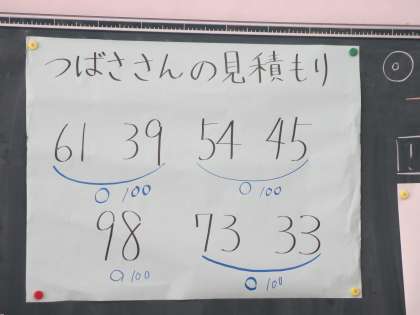 つばささんの見積もり
61 39 54 45
○ 100 ○ 100
98 73 33
○ 100 ○ 100